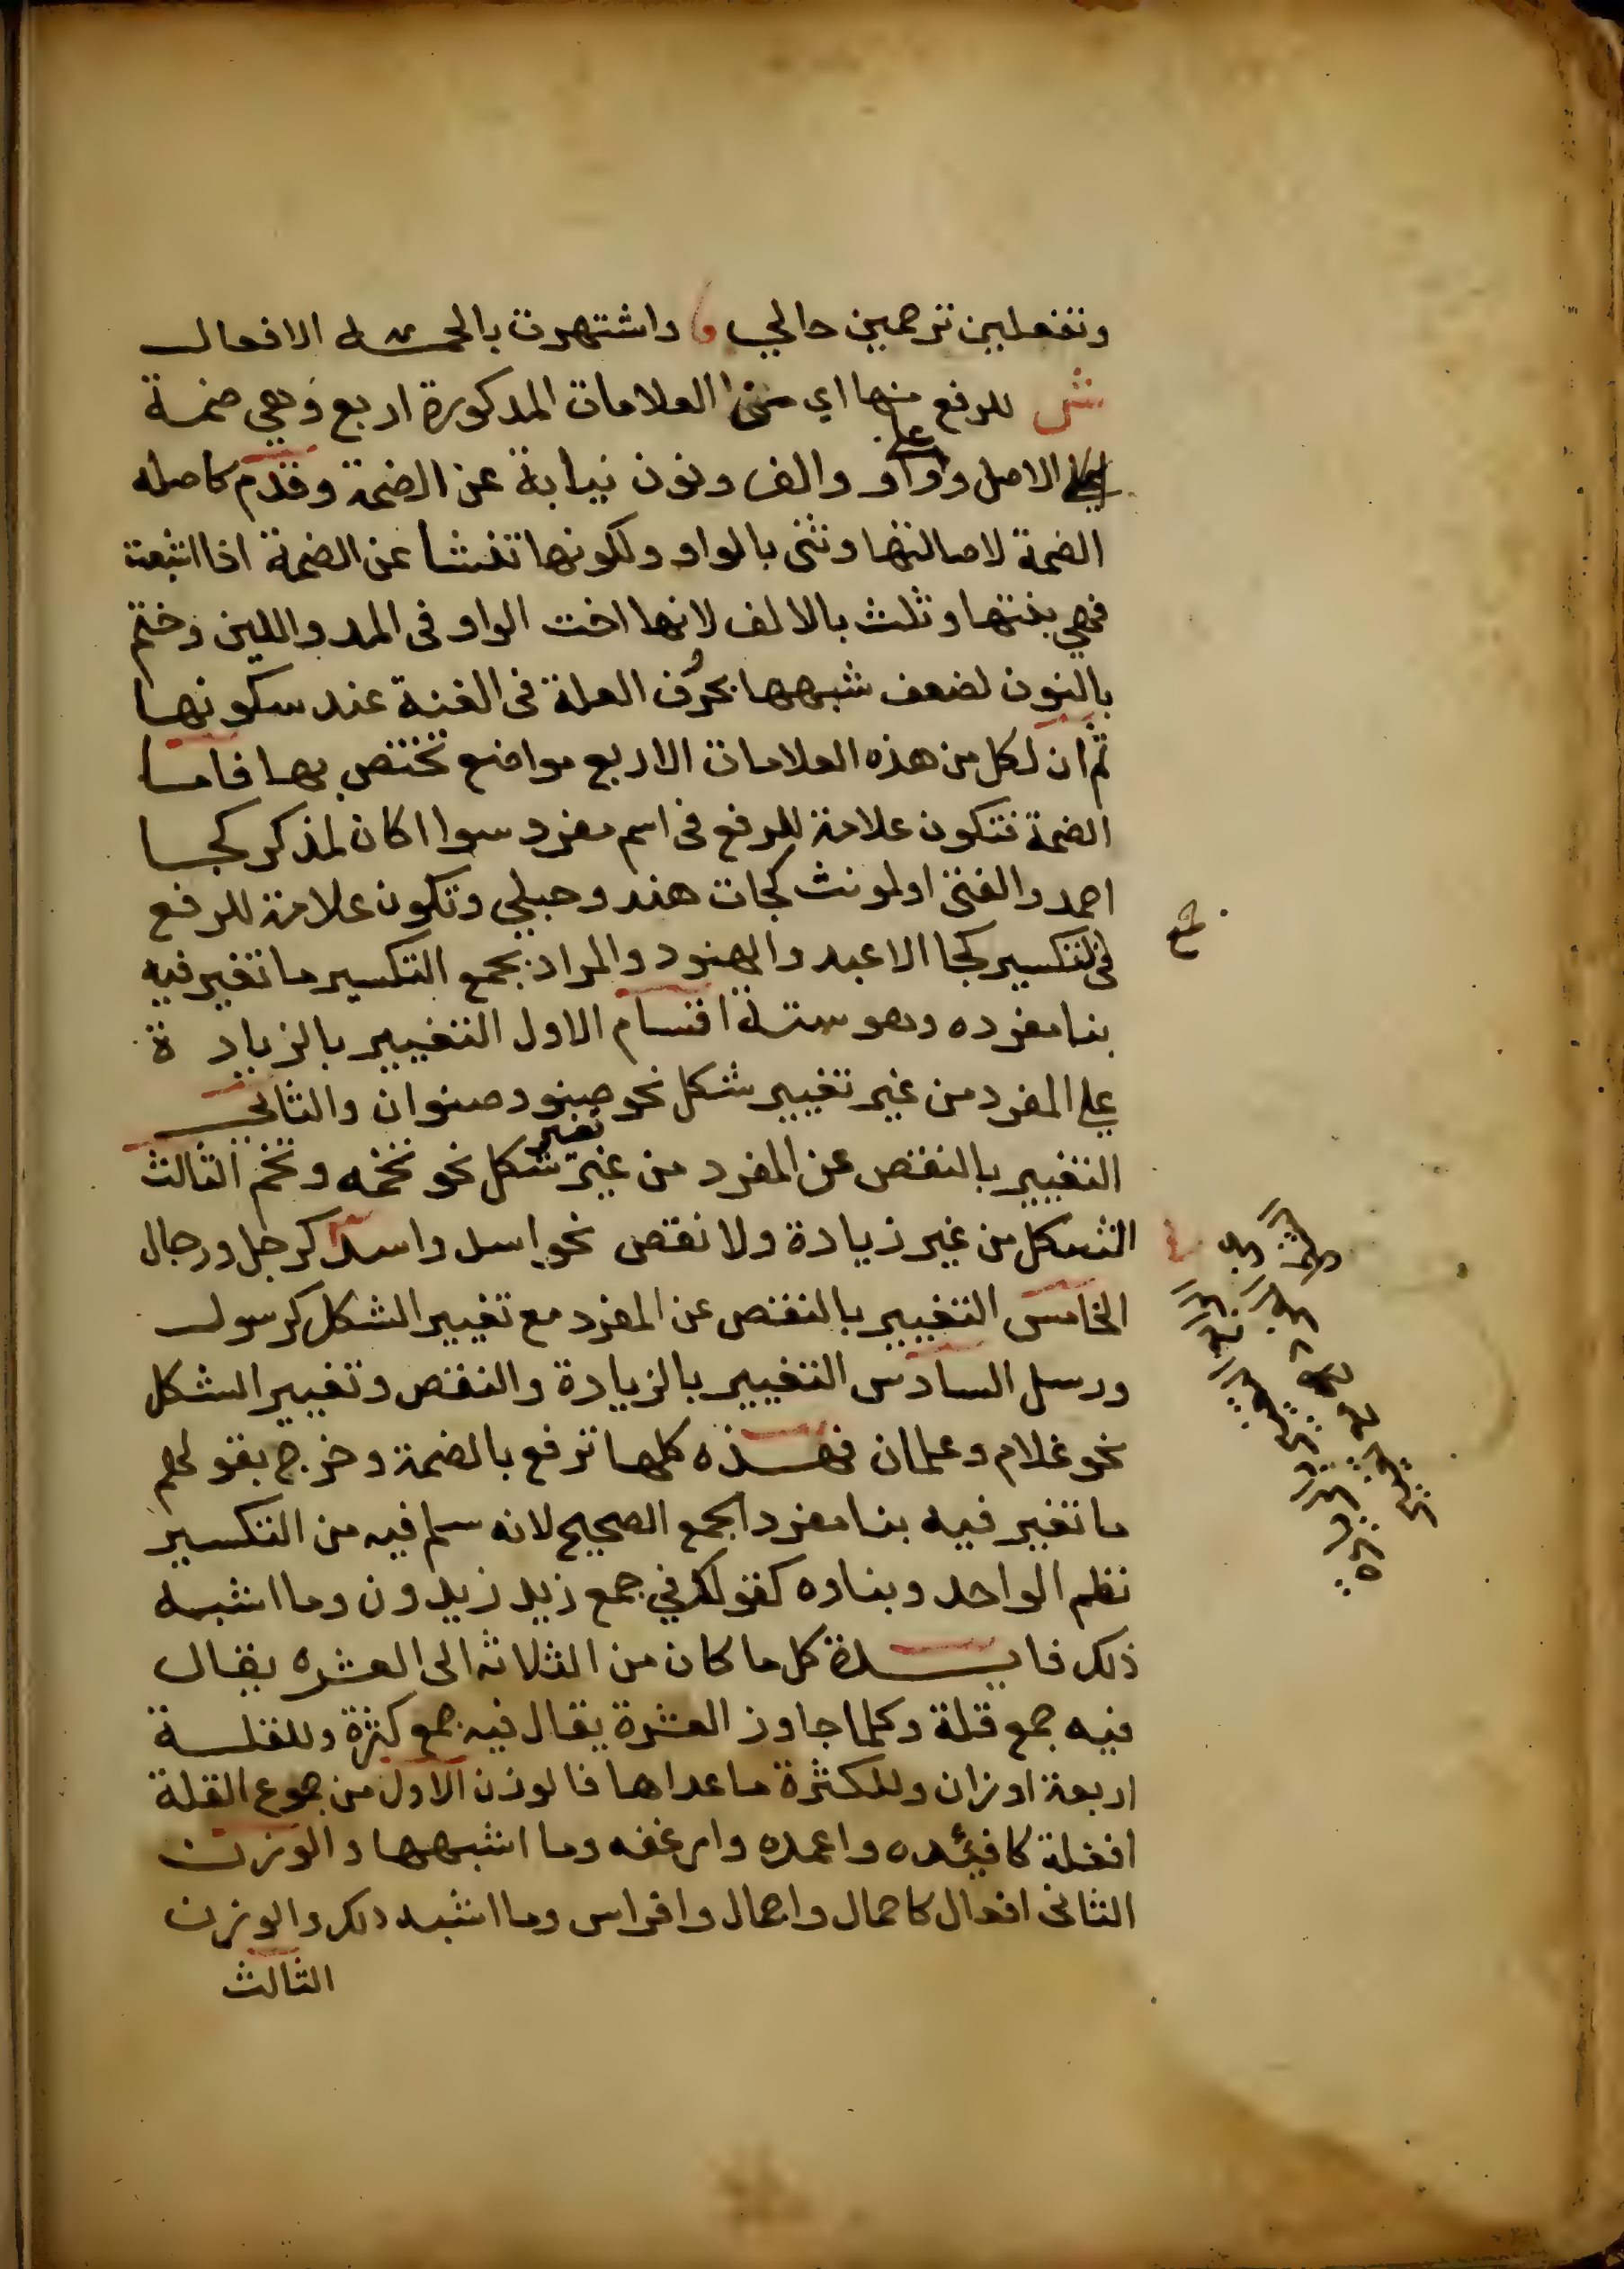 وتفعلين ترحمين حالي واشتهرت بالخمسة الافعال
ش للرفع منها اي من العلامات المذكورة اربع وهي ضمة
على الاصل وواو والف ونون نيابة عن الضمة وقدم كاصله
الضمة لاصالتها وثنى بالواو ولكونها تنشا عن الضمة اذا اشبعت
فهي بنتها وثلث بالالف لانها اخت الواو فى المد واللين وختم
بالنون لضعف شبهها بحرف العلة فى الغنة عند سكونها
ثم ان لكل من هذه العلامات الاربع مواضع تختص بها فاما
الضمة فتكون علامة للرفع فى اسم مفرد سوا اكان لمذكر كجا
احمد والفتى او لمونث كجات هند وحبلي وتكون علامة للرفع
فى التكسير كجا الاعبد والهنود والمراد بجمع التكسير ما تغير فيه
جمع
بنا مفرده وهو ستة اقسام الاول التغيير بالزيادة
على المفرد من غير تغيير شكل نحو صنو وصنوان والثاني
التغيير بالنقص عن المفرد من غير تغيير شكل نحو تخمه وتخم الثالث
الشكل من غير زيادة ولا نقص نحو اسد واسد كرجل ورجال
الخامس التغيير بالنقص عن المفرد مع تغيير الشكل كرسول
ورسل السادس التغيير بالزيادة والنقص وتغيير الشكل
نحو غلام وغلمان فهذه كلها ترفع بالضمة وخرج بقولهم
ما تغير فيه بنا مفرد الجمع الصحيح لانه سلم فيه من التكسير
نظم الواحد وبناوه كقولك في جمع زيد زيدون وما اشبه
ذلك فايدة كل ما كان من الثلاثة الى العشره يقال
فيه جمع قلة وكلما جاوز العشرة يقال فيه جمع كثرة وللقلة
اربعة اوزان وللكثرة ما عداها فالوزن الاول من جموع القلة
افعلة كافيئده واعمده وارغفه وما اشبهها والوزن
الثانى افعال كاحمال واجمال وافراس وما اشبه ذلك والوزن
الثالث